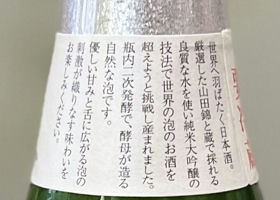 世界へ羽ばたく日本酒。
厳選した山田錦と蔵で採れる
良質な水を使い純米大吟醸の
技法で世界の泡のお酒を
超えようと挑戦し産まれました。
瓶内二次発酵で、酵母が造る
自然な泡です。
優しい甘みと舌に広がる泡の
刺激が織りなす味わいを
お楽しみください。